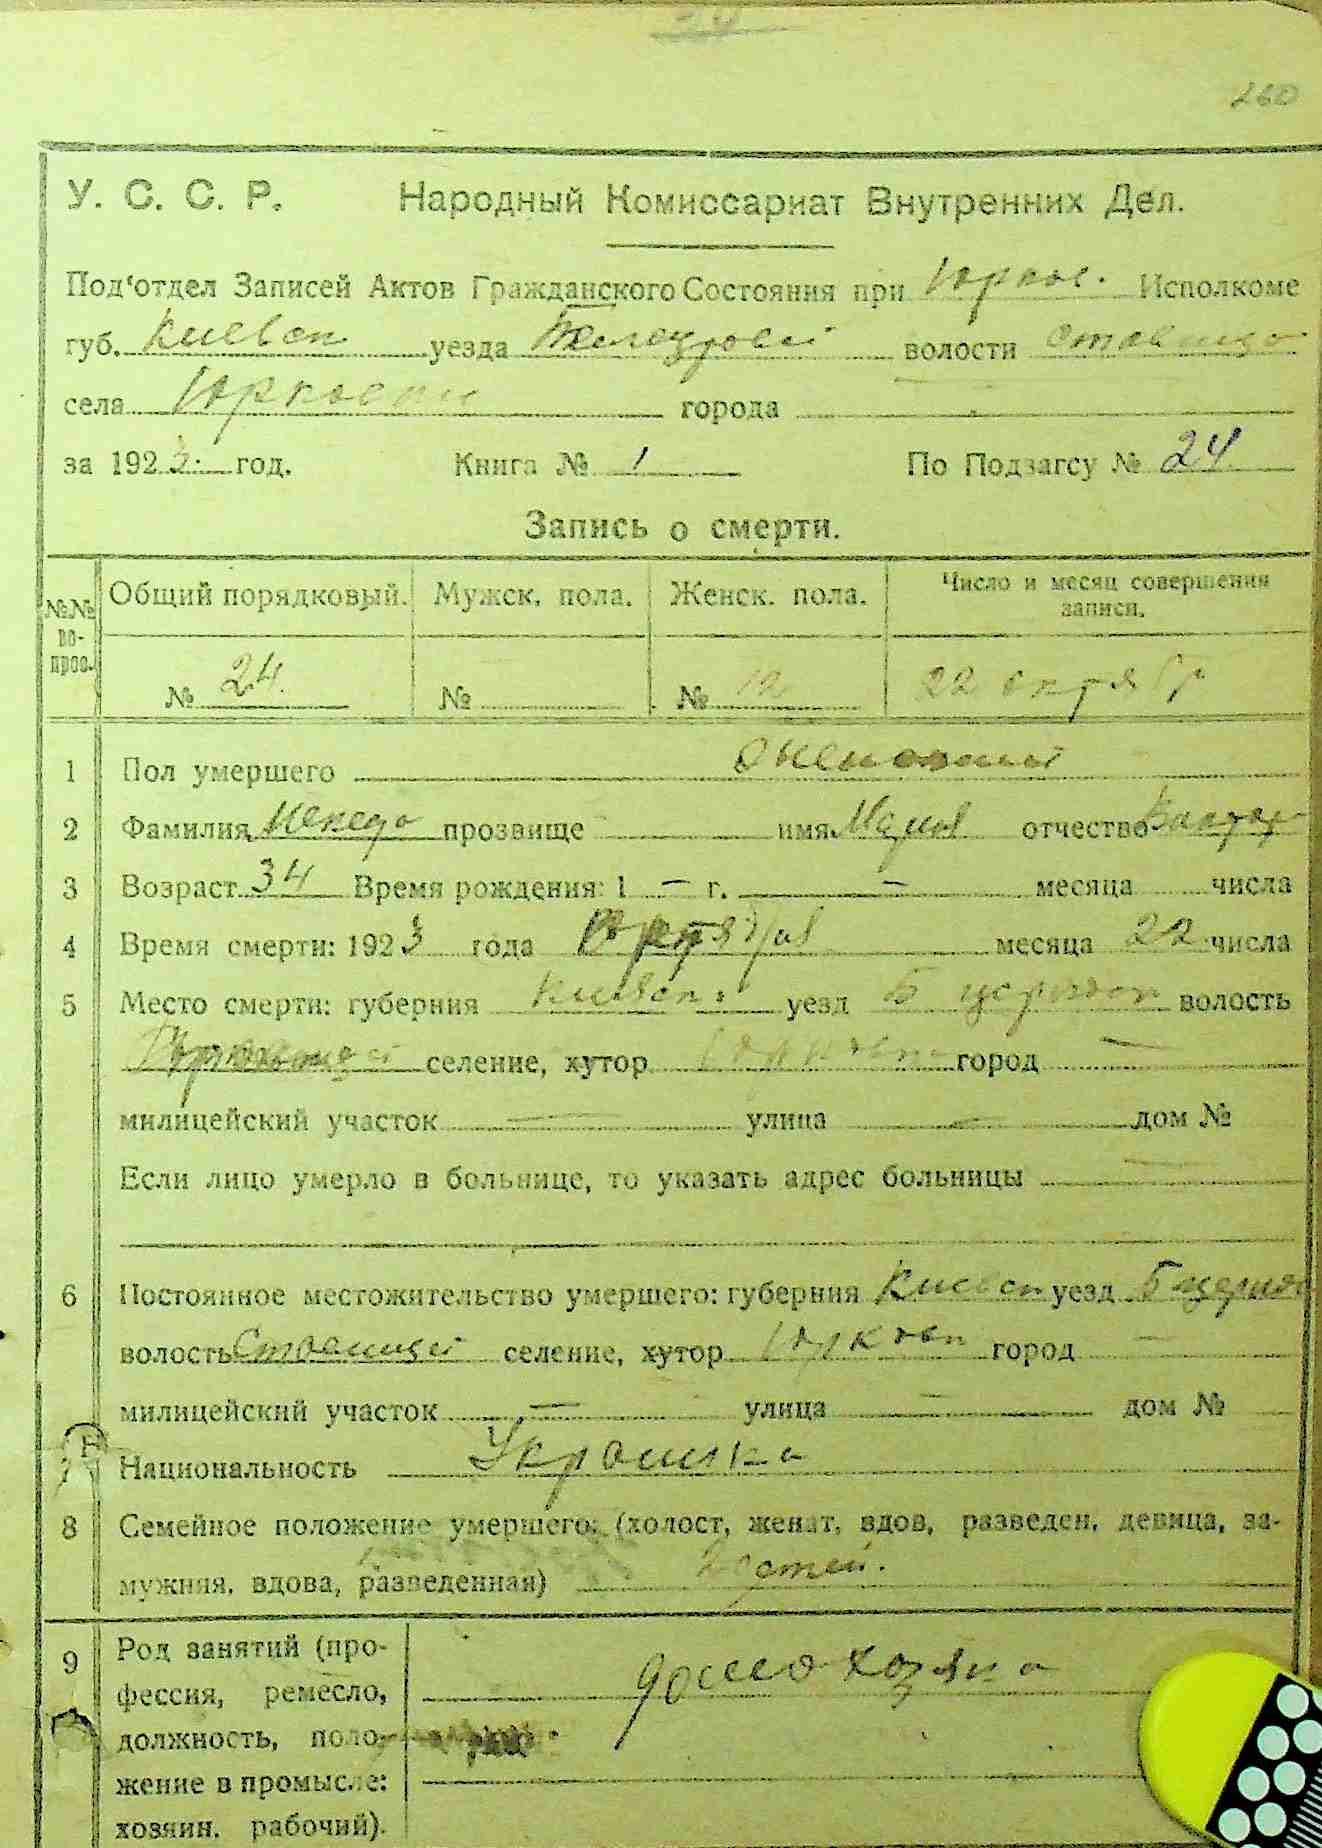 24
260
У. С. С. Р. Народный Комиссариат Внутренних Дел.
Под'отдел Записей Актов Гражданского Состояния при Юрков. Исполкоме
губ. Киевск уезда Белоцерков волости Ставищ
села Юрковки города
за 1923 год. Книга № 1 По Подзагсу № 24
Запись о смерти.
№№ вопрос. Общий порядковый. Мужск. пола. Женск. пола. Число и месяц совершения записи.
№ 24 № № 12 22 октябр
1 Пол умершего
2 Фамилия прозвище имя Мария отчество
3 Возраст 34 Время рождения: 1 — г. — месяца числа
4 Время смерти: 1923 года Октября месяца 22 числа
5 Место смерти: губерния Киевск. уезд Б церковск волость
селение, хутор Юрковк город —
милицейский участок — улица — дом №
Если лицо умерло в больнице, то указать адрес больницы —
6 Постоянное местожительство умершего: губерния Киевск уезд Б церков
волость Ставищей селение, хутор Юрковк город —
милицейский участок — улица — дом №
7 Национальность Украинка
8 Семейное положение умершего: (холост, женат, вдов, разведен, девица, за-
мужняя, вдова, разведенная) детей.
9 Род занятий (про-
фессия, ремесло,
должность, поло-
жение в промысле:
хозяин, рабочий).
домохозяика